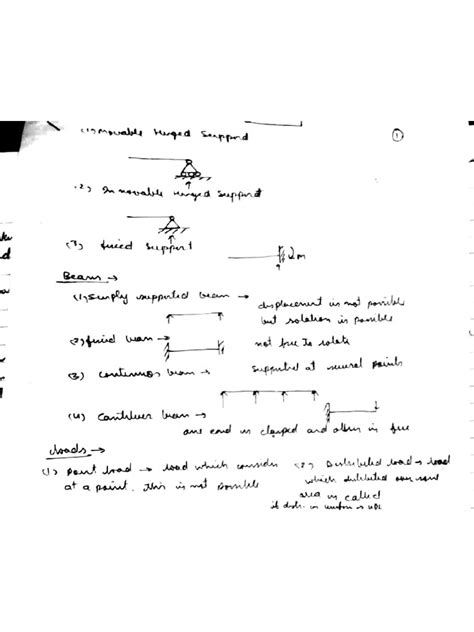 (1) Movable Hinged Support
1
(2) Immovable Hinged Support
(3) fixed support
Beam →
(1) Simply supported beam → displacement is not possible
but rotation is possible
(2) fixed beam → not free to rotate
(3) continuous beam → supported at several points
(4) Cantilever beam →
one end is clamped and other is free
Loads →
(1) Point load → load which consider
at a point. This is not possible
(2) Distributed load → load
which distributed over some
area is called
if distr. is uniform is UDL